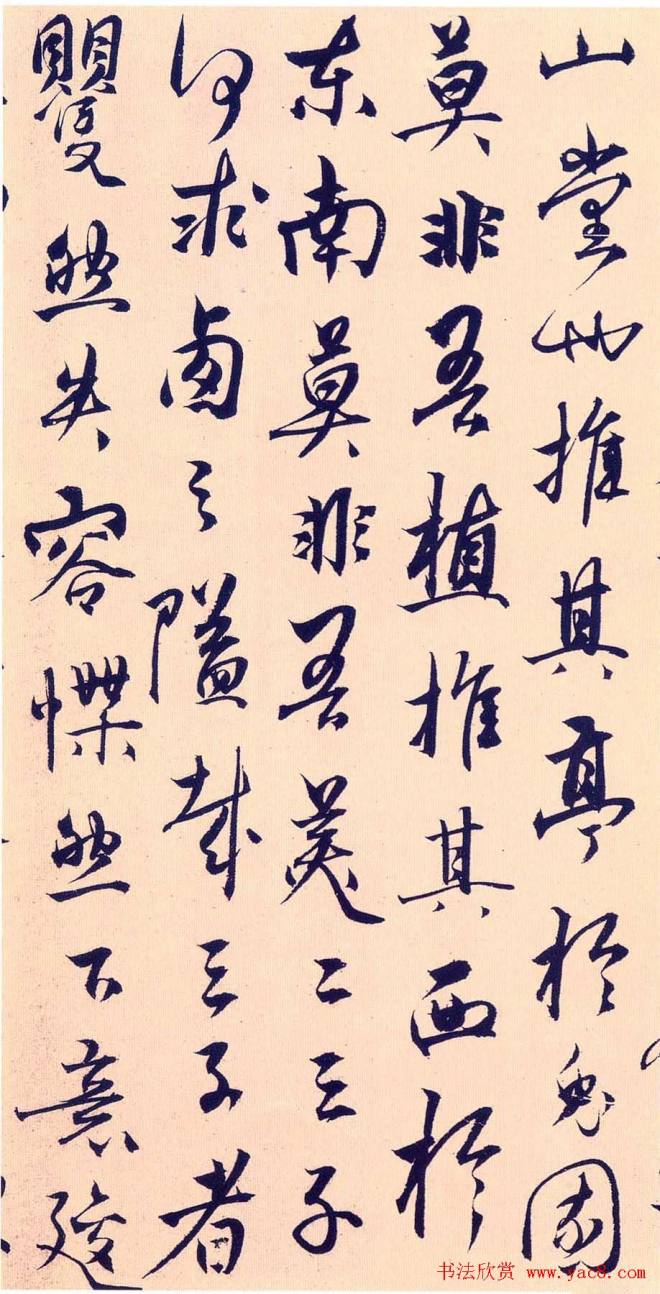 山堂也推其亭於兔園
莫非吾植推其西於
東南莫非吾美二三子
何求卥之隘哉三子者
矍然失容惵然下意逡
书法欣赏 www.yac8.com